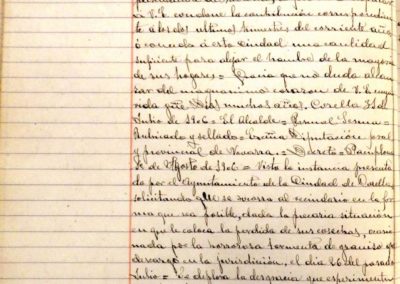 á V. E. condone la contribución correspondiente
á los dos ultimos trimestres del corriente año
ó conceda á esta ciudad una cantidad
suficiente para alejar el hambre de la mayoría
de sus hogares = Gracia que no duda alcanzar
del magnanimo corazon de V. E. cuya
vida gde Dios muchos años. Corella 31 de
Julio de 1906 = El Alcalde =
Rubricado y sellado = Excma Diputación foral
y provincial de Navarra = Decreto = Pamplona
de Agosto de 1906 = Vista la instancia presentada
por el Ayuntamiento de la Ciudad de Corella,
solicitando que se socorra al vecindario en la forma
que sea posible, dada la precaria situación
en que le coloca la perdida de sus cosechas, ocasionada
por la horrorosa tormenta de granizo que
descargó en la jurisdicción, el dia 26 del pasado
Julio = Se deplora la desgracia que